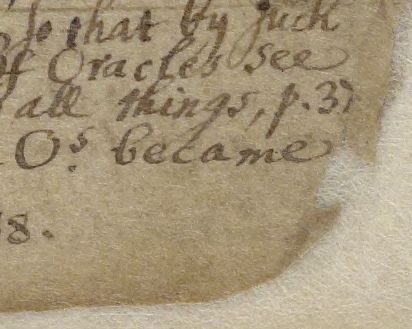 so that by such
of Oracles see
all things, p. 37
Os became
8.